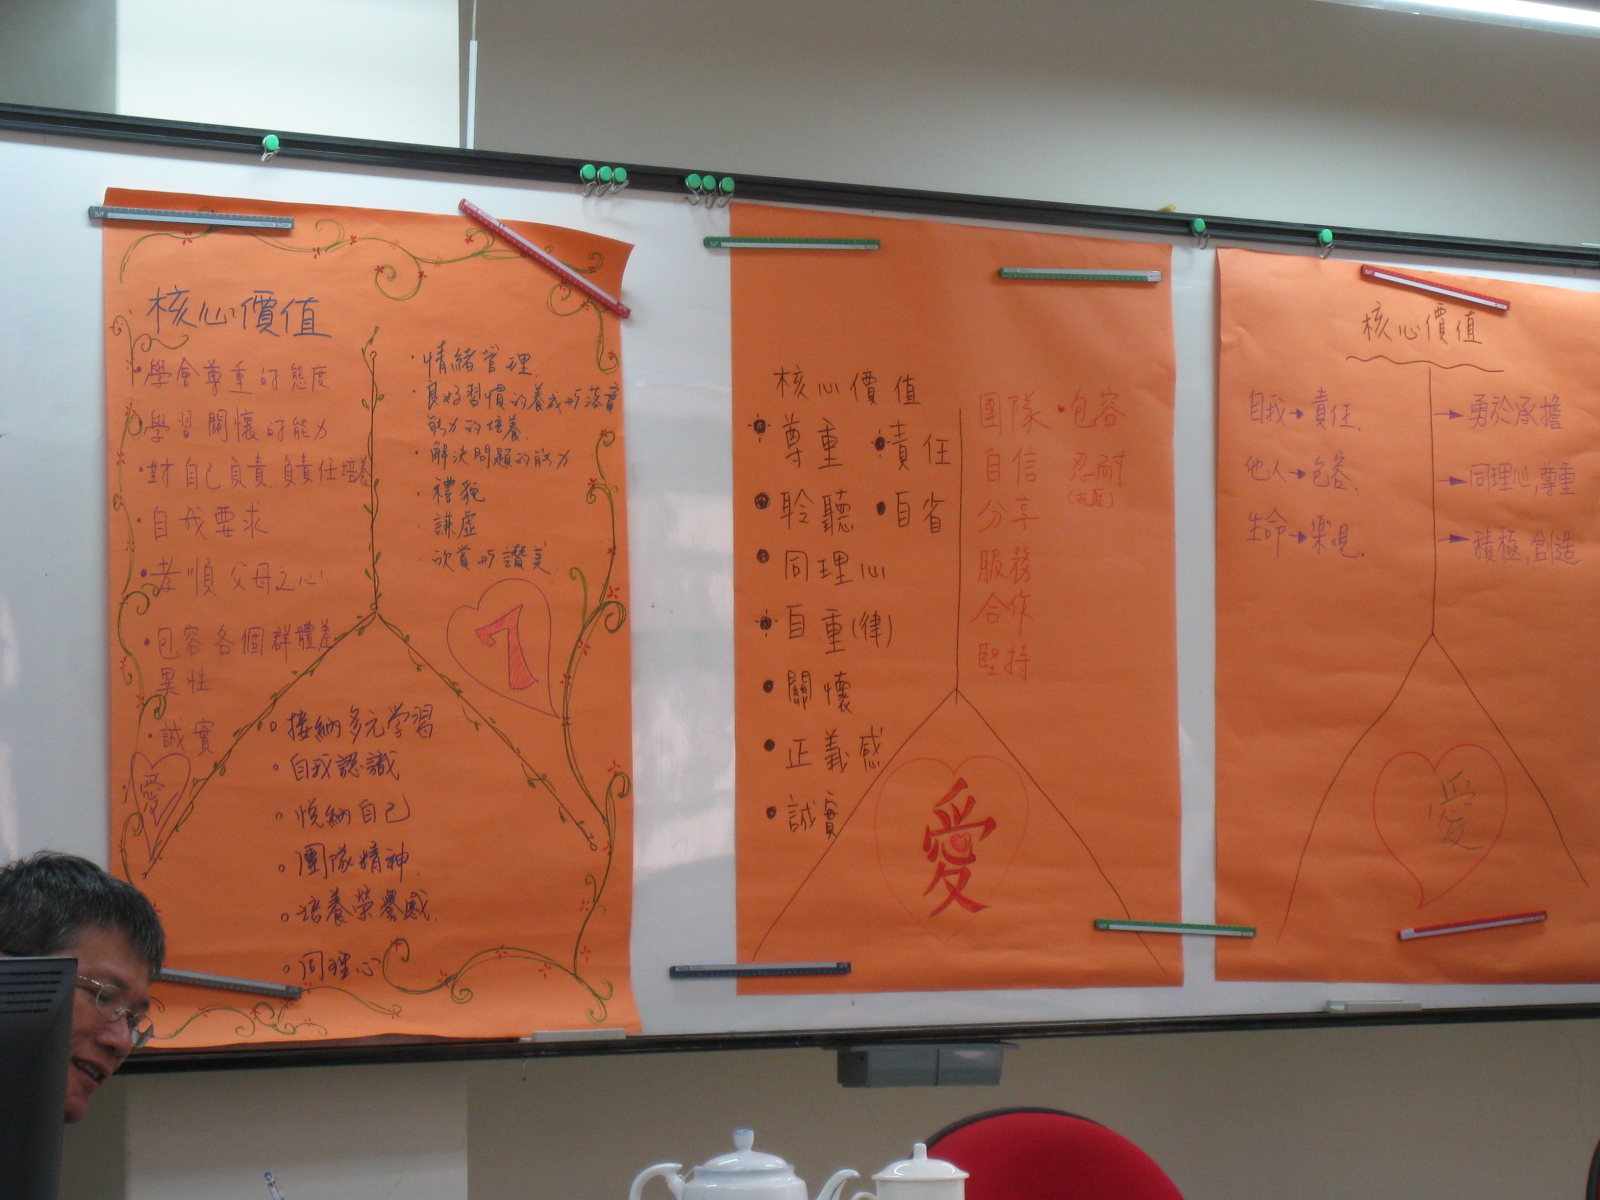 核心價值
・學會尊重的態度
・學習關懷的能力
・對自己負責 負責任培養
・自我要求
・孝順父母之心
・包容各個群體差
異性
・誠實
愛
・情緒管理
・良好習慣的養成与落實
能力的培養
・解決問題的能力
・禮貌
・謙虛
・欣賞与讚美
7
。接納多元学習
。自我認識
。悅納自己
。團隊精神
。培養榮譽感
。同理心
核心價值
尊重 ・責任
・聆聽 ・自省
・同理心
自重(律)
・關懷
・正義感
・誠實
團隊 ・包容
自信 忍耐
分享
服務
合作
堅持
愛
核心價值
自我→責任
→勇於承擔
他人→包容
→同理心,尊重
生命→樂觀
→積極,創造
愛